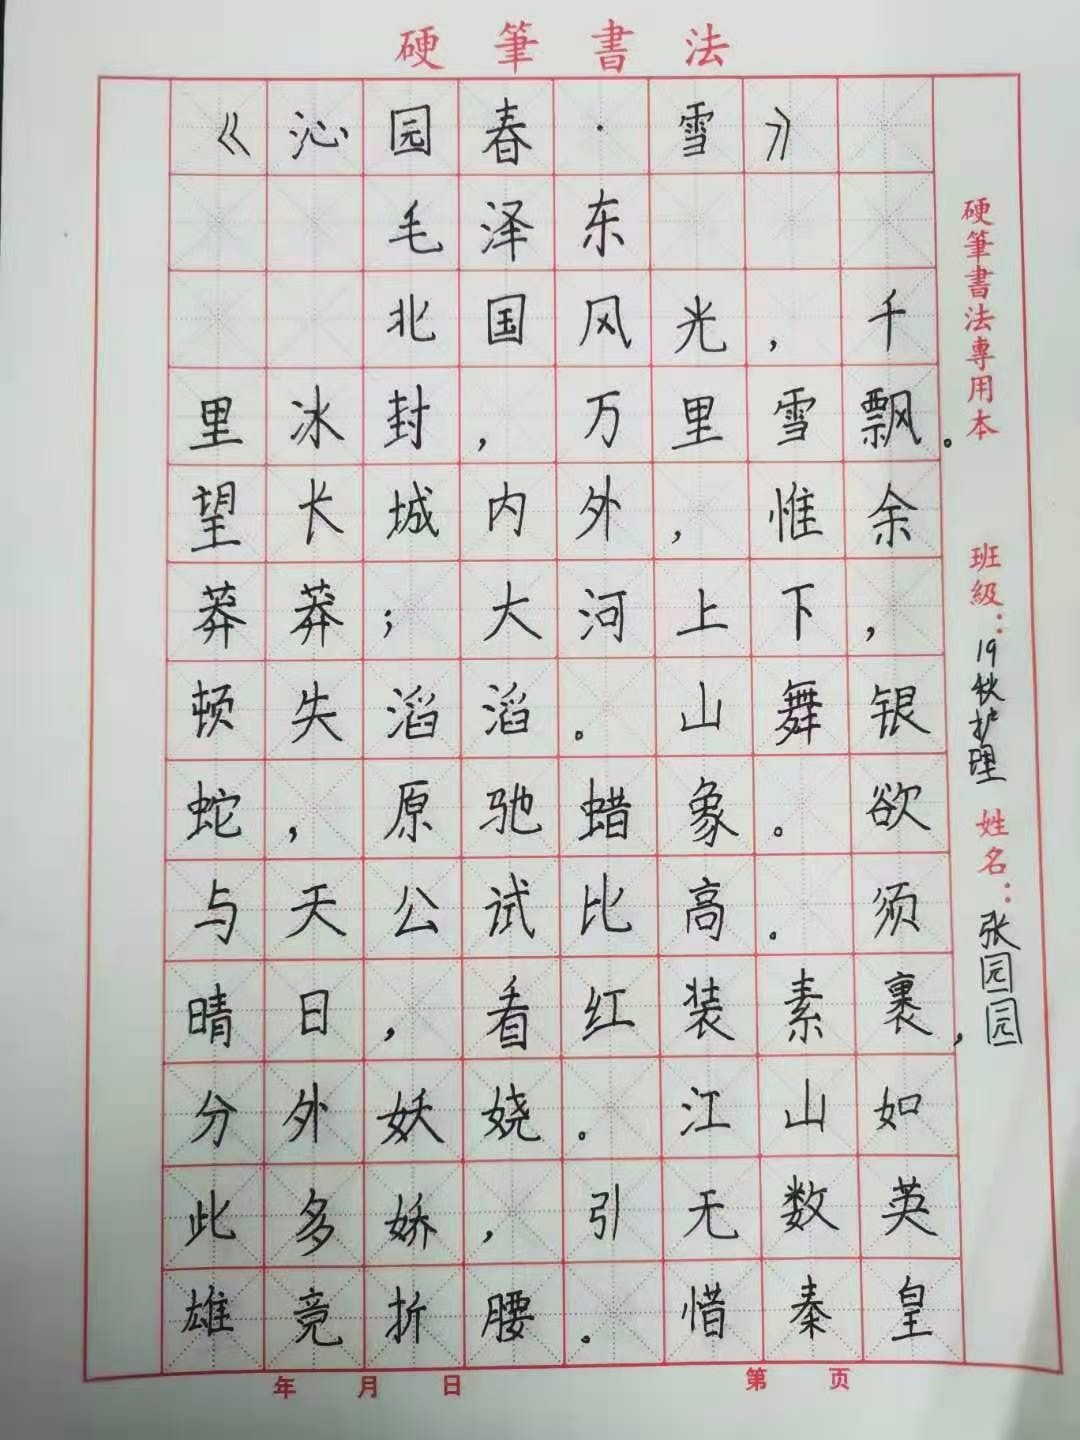 硬筆書法
《沁园春·雪》
毛泽东
北国风光，千
里冰封，万里雪飘。
望长城内外，惟余
莽莽；大河上下，
顿失滔滔。山舞银
蛇，原驰蜡象。欲
与天公试比高。须
晴日，看红装素裹，
分外妖娆。江山如
此多娇，引无数英
雄竞折腰。惜秦皇
年 月 日 第 页
硬筆書法專用本 班級：19秋护理 姓名：张园园